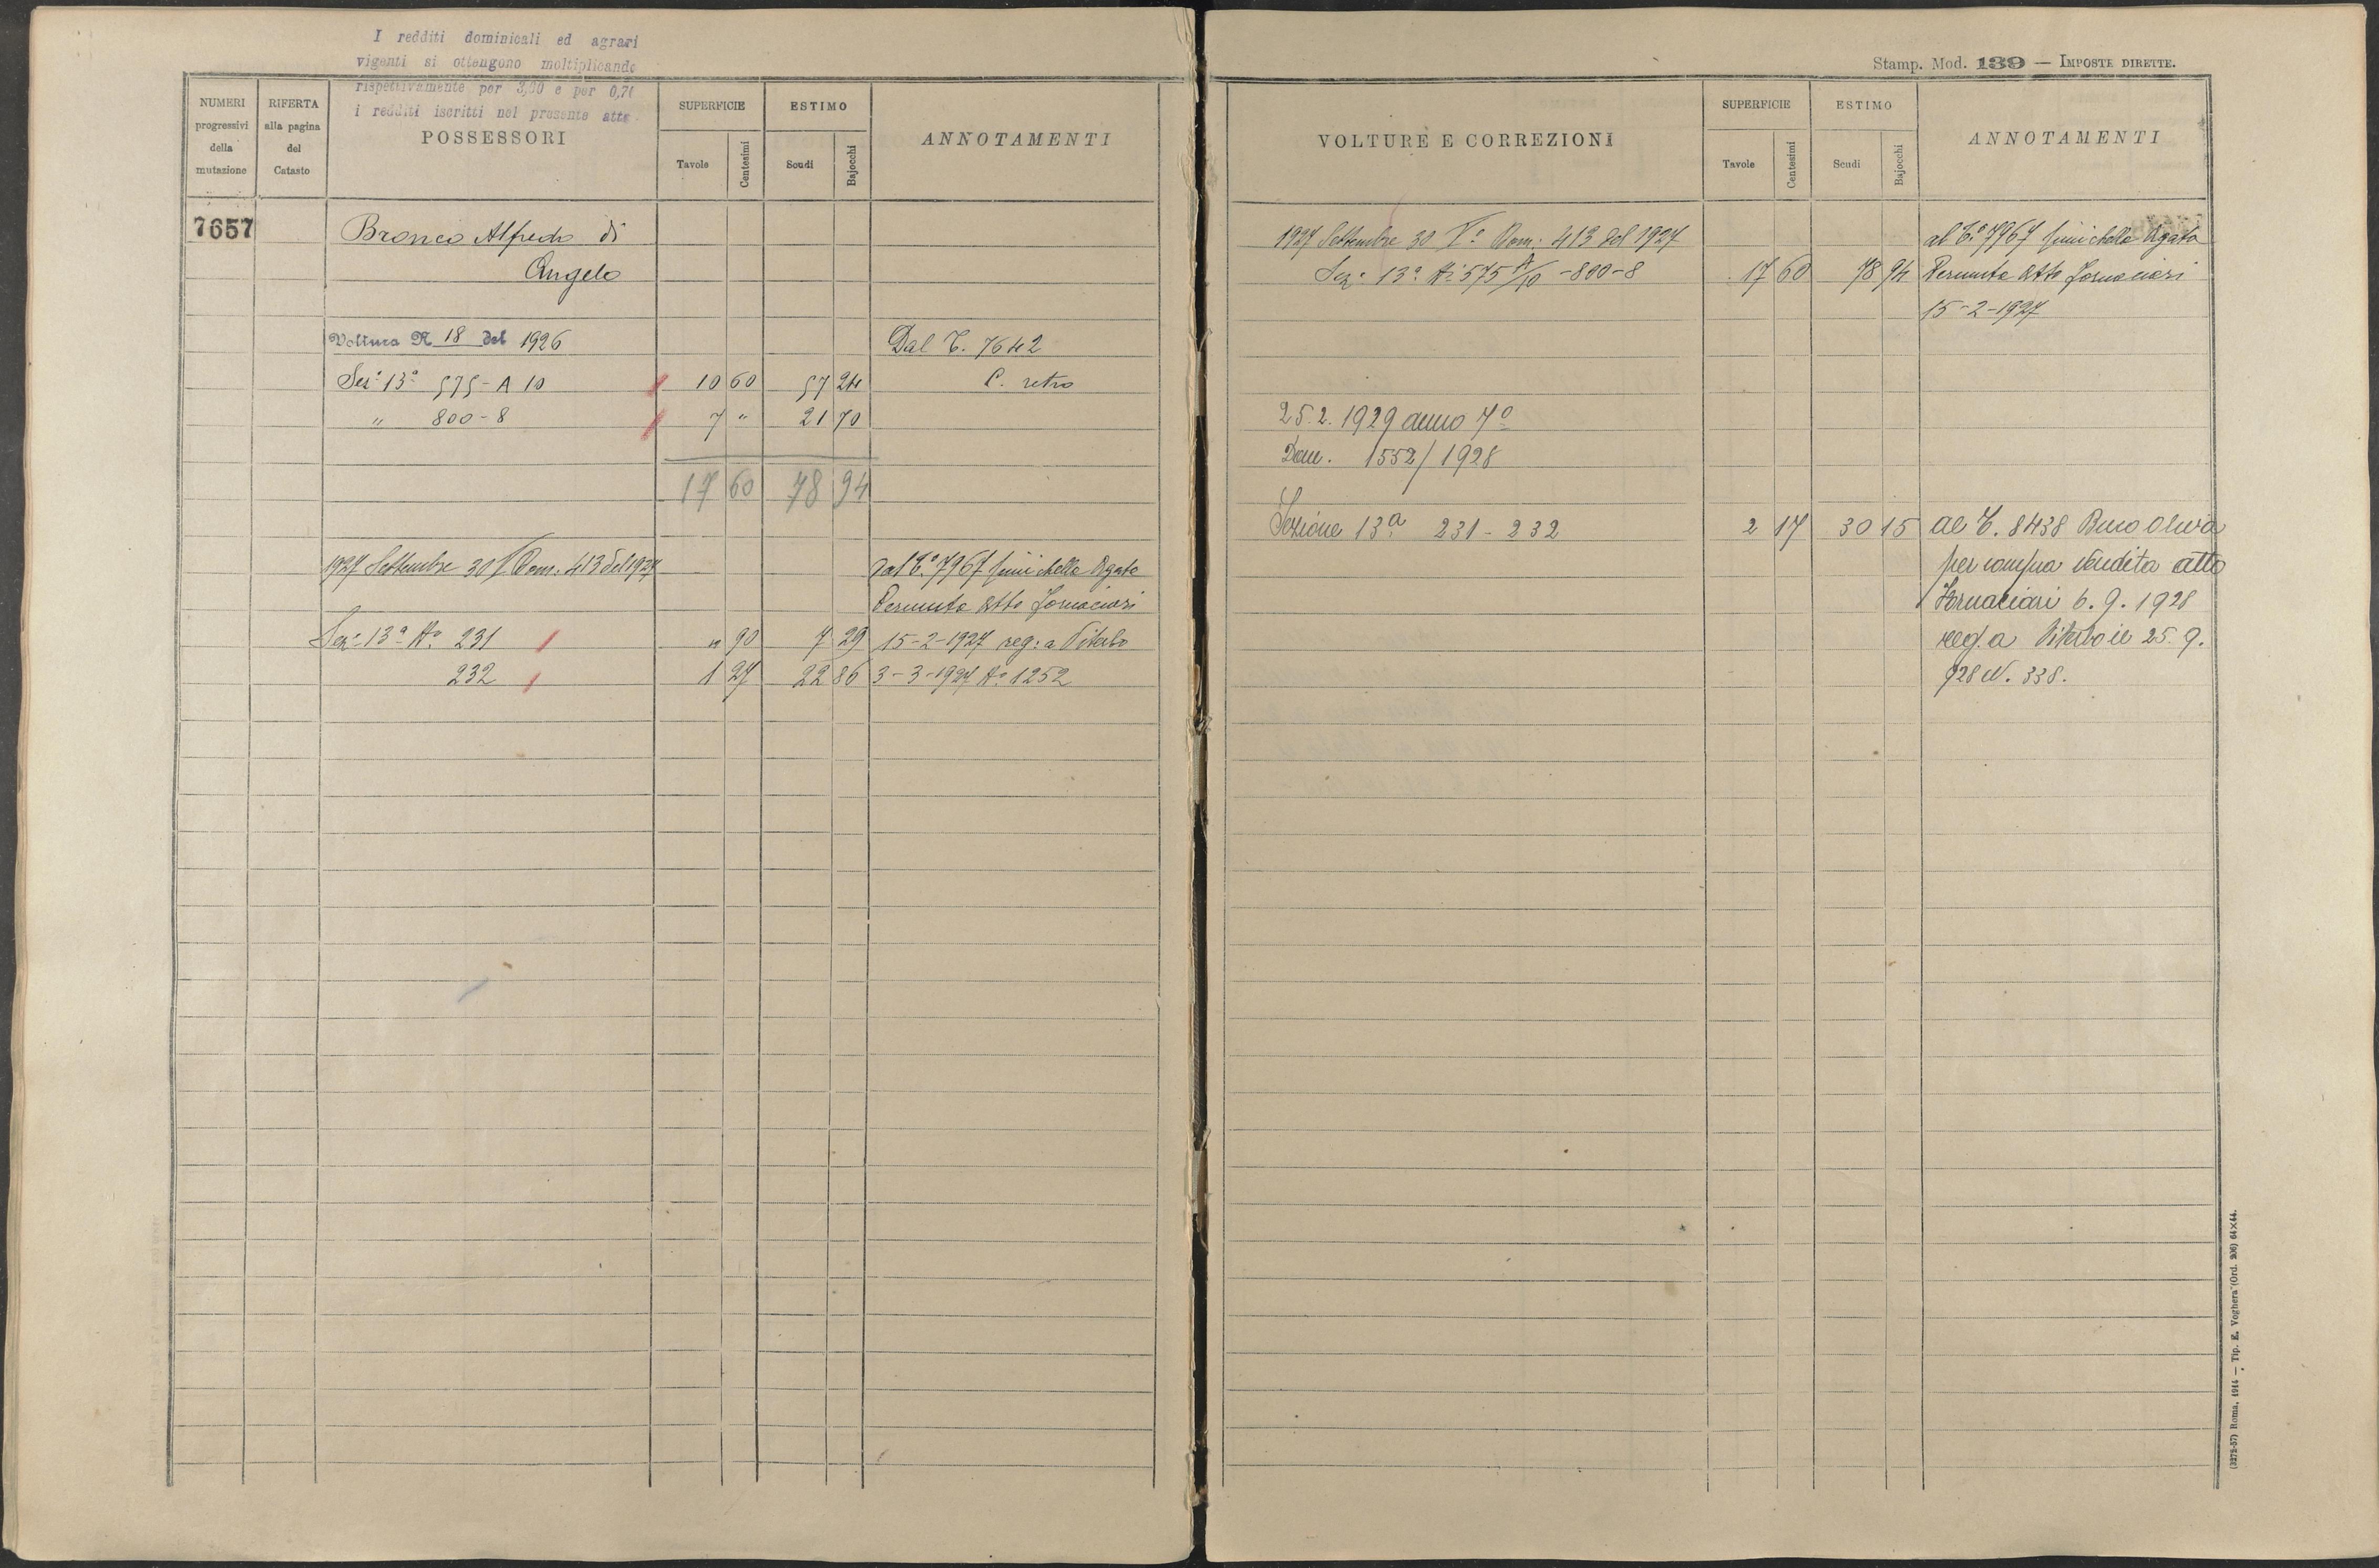 I redditi dominicali ed agrari
vigenti si ottengono moltiplicando
rispettivamente per 3,00 e per 0,70
i redditi iscritti nel presente atto
NUMERI progressivi della mutazione
RIFERTA alla pagina del Catasto
POSSESSORI
SUPERFICIE
Tavole
Centesimi
ESTIMO
Scudi
Bajocchi
ANNOTAMENTI
7657
Bronco Alfredo di
Angelo
Voltura N 18 del 1926 Dal T. 7642
Sez. 13ª 575-A 10 10 60 57 24 C. retro
" 800-8 7 " 21 70
17 60 78 94
1927 Settembre 30 V. Dom. 413 del 1927 dal T.º 7967 Agata
Permuta Atto Fornaciari
Sez. 13ª Nº 231 " 90 7 29 15-2-1927 reg: a Viterbo
232 1 27 22 86 3-3-1927 Nº 1252
Stamp. Mod. 139 — IMPOSTE DIRETTE.
VOLTURE E CORREZIONI
SUPERFICIE
Tavole
Centesimi
ESTIMO
Scudi
Bajocchi
ANNOTAMENTI
1927 Settembre 30 Vº Dom: 413 del 1927 al T.º 7967 Agata
Sez. 13ª Nⁱ 575 A/10 -800-8 17 60 78 94 Permuta Atto Fornaciari
15-2-1927
25.2.1929 anno 7º
Dom. 1552/1928
Sezione 13ª 231-232 2 17 30 15 al T. 8438 Oliva
per compra vendita atto
Fornaciari 6.9.1928
reg. a Viterbo il 25.9.
928 N. 338.
(3272-57) Roma, 1914 — Tip. E. Voghera (Ord. 206) 64×44.